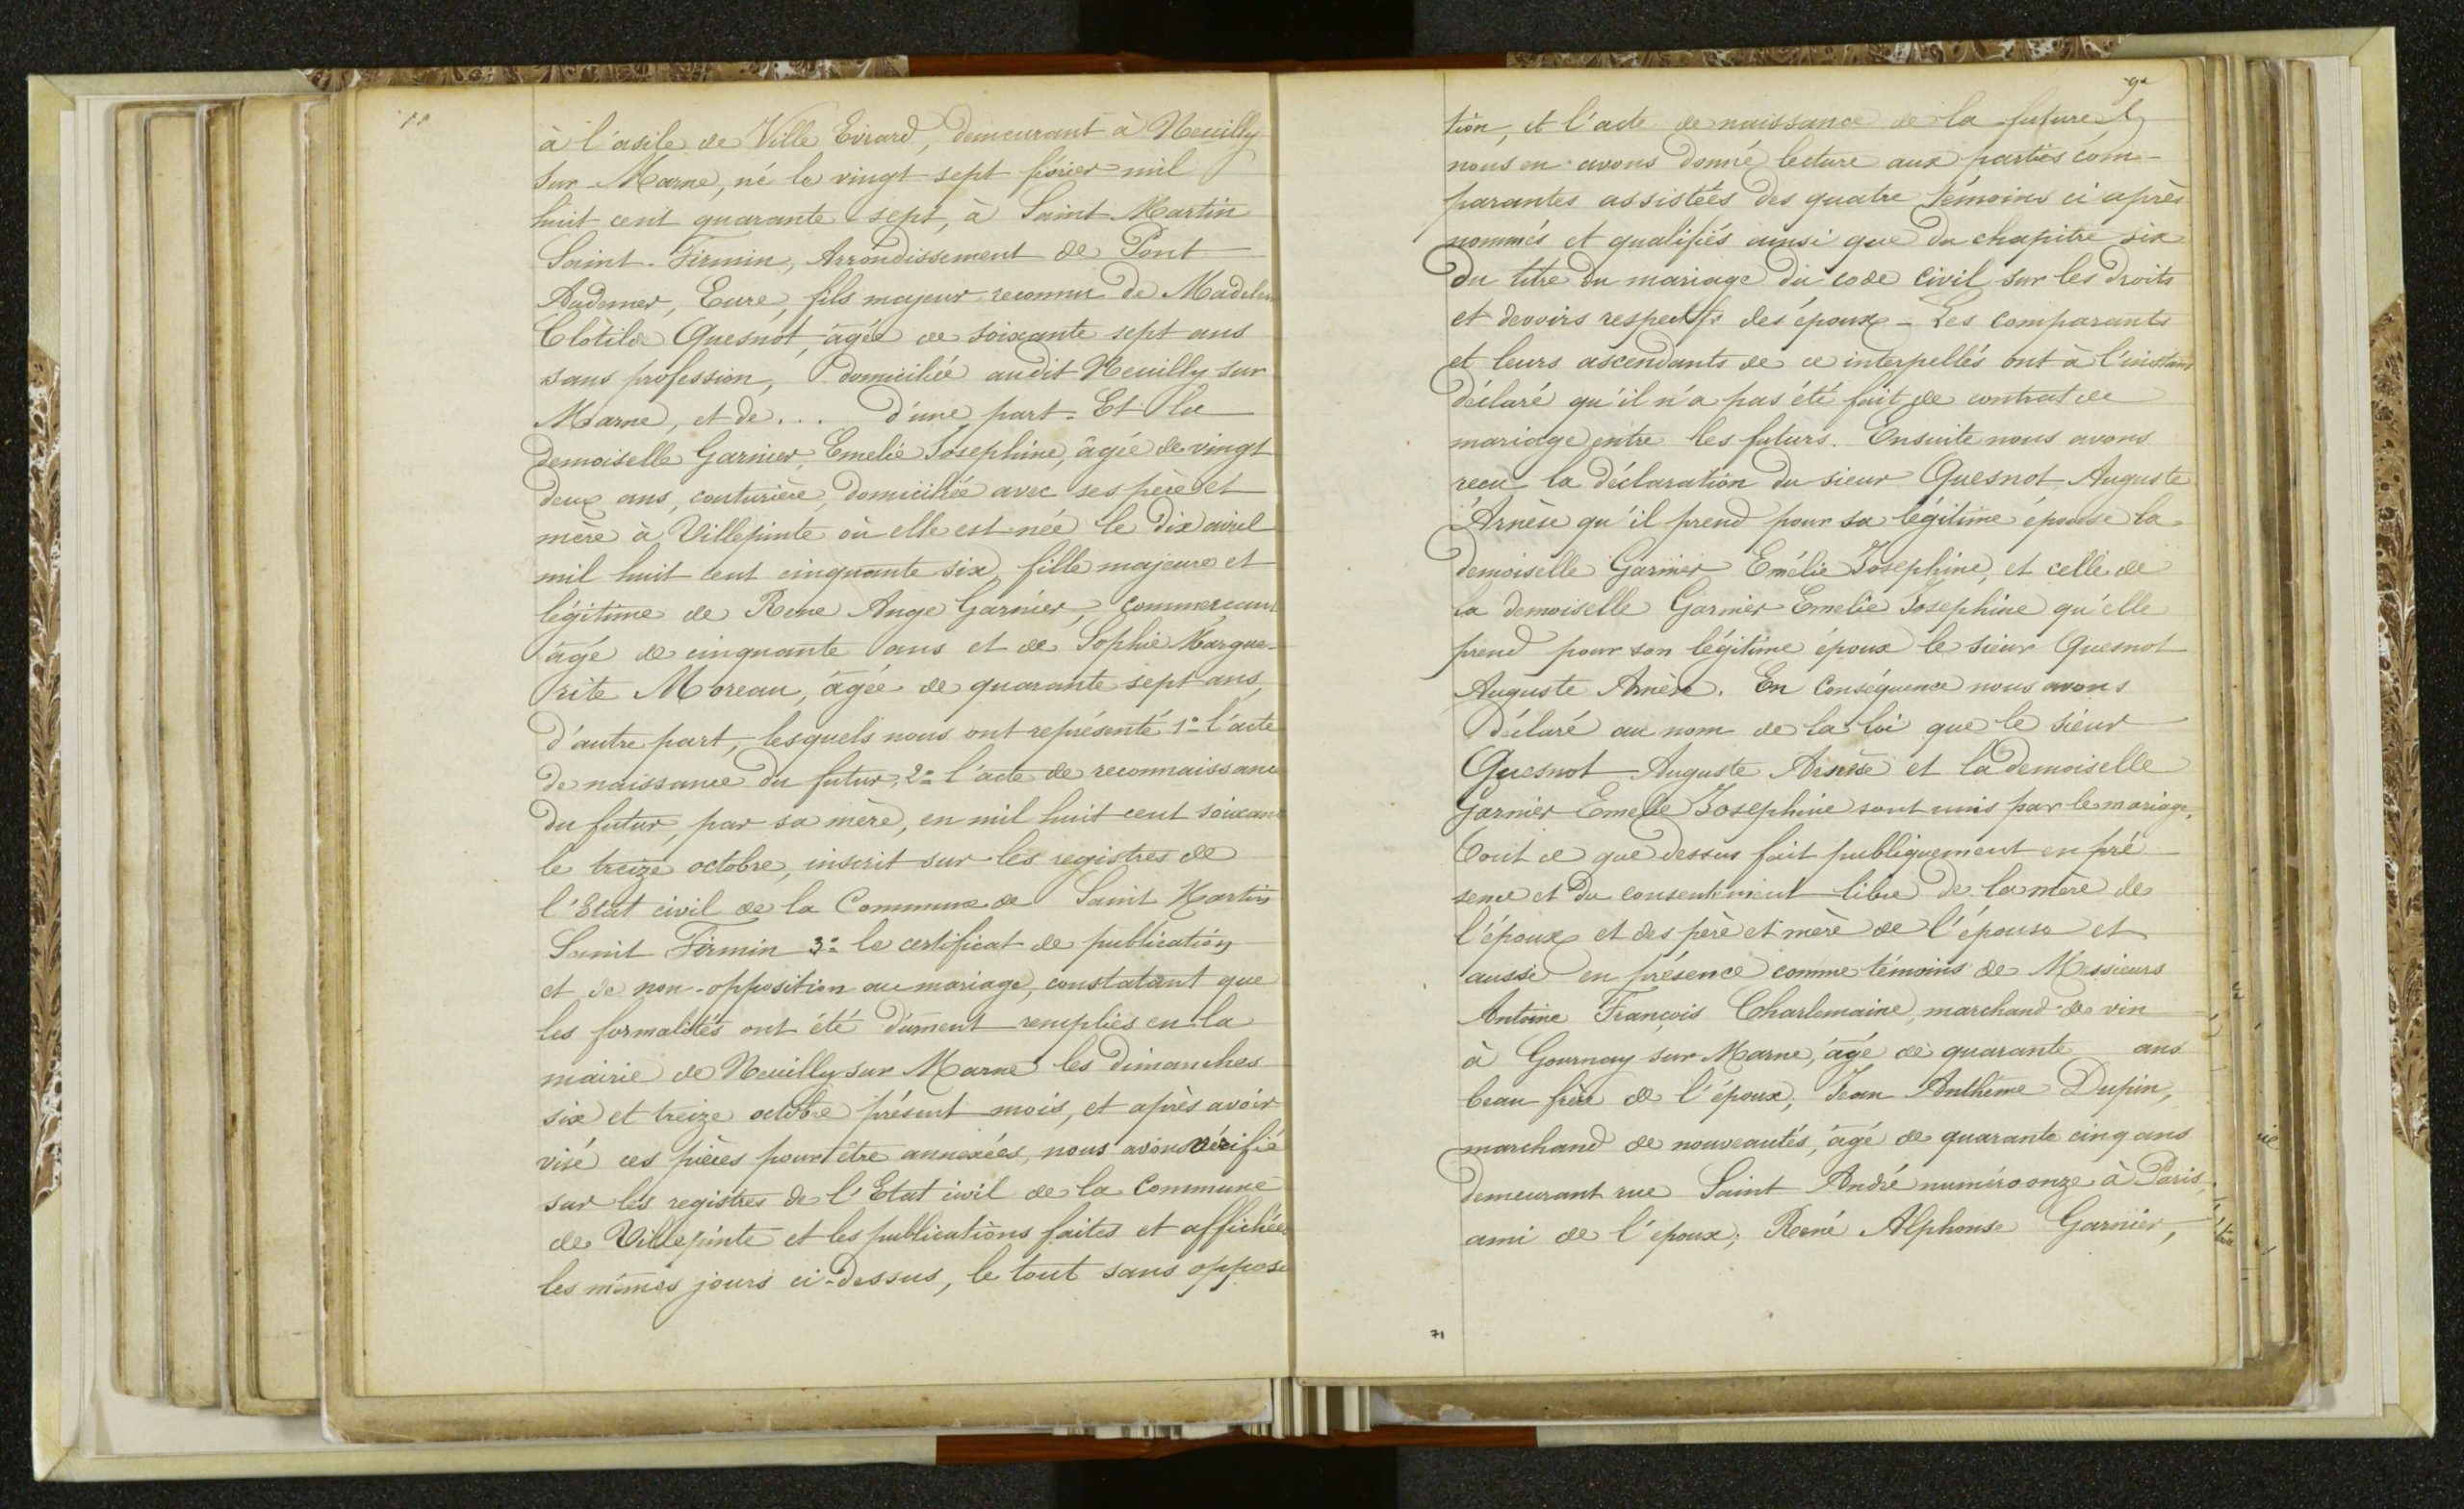 à l'asile de Ville Evrard, demeurant à Neuilly
sur-Marne, né le vingt sept février mil
huit cent quarante sept, à Saint Martin
Saint-Firmin, Arrondissement de Pont
Audemer, Eure, fils majeur reconnu de Madeleine
Clotilde Quesnot, âgée de soixante sept ans
sans profession, domiciliée audit Neuilly sur
Marne, et de ... d'une part. Et la
demoiselle Garnier, Emelie Josephine, âgée de vingt
deux ans, couturière, domiciliée avec ses père et
mère à Villepinte où elle est née le dix avril
mil huit cent cinquante six, fille majeure et
légitime de Rene Ange Garnier, commercant
âgé de cinquante ans et de Sophie Margue-
rite Moreau, âgée de quarante sept ans,
d'autre part, lesquels nous ont représenté 1º l'acte
de naissance du futur, 2º l'acte de reconnaissance
du futur, par sa mère, en mil huit cent soixante
le treize octobre, inscrit sur les registres de
l'Etat civil de la Commune de Saint Martin
Saint Firmin 3º le certificat de publication
et de non-opposition au mariage, constatant que
les formalités ont été dûment remplies en la
mairie de Neuilly sur Marne les dimanches
six et treize octobre présent mois, et après avoir
visé ces pièces pour être annexées, nous avons vérifié
sur les registres de l'Etat civil de la Commune
de Villepinte et les publications faites et affichées
les mêmes jours ci-dessus, le tout sans opposi
tion, et l'acte de naissance de la future &
nous en avons donné lecture aux parties com-
parantes assistées des quatre témoins ci après
nommés et qualifiés ainsi que du chapitre six
du titre du mariage du code civil sur les droits
et devoirs respectifs des époux - Les comparants
et leurs ascendants de ce interpellés ont à l'instant
déclaré qu'il n'a pas été fait de contrat de
mariage entre les futurs. Ensuite nous avons
recu la déclaration du sieur Quesnot Auguste
Arnèse qu'il prend pour sa légitime épouse la
demoiselle Garnier Emélie Josephine, et celle de
la demoiselle Garnier Emelie Josephine qu'elle
prend pour son légitime époux le sieur Quesnot
Auguste Arnèse. En Conséquence nous avons
déclaré au nom de la loi que le sieur
Quesnot Auguste Arnèse et la demoiselle
Garnier Emelie Josephine sont unis par le mariage.
Tout ce que dessus fait publiquement en pré
sence et du consentement libre de la mère de
l'époux et des père et mère de l'épouse et
aussi en présence comme témoins de Messieurs
Antoine François Charlemaine, marchand de vin
à Gournay sur Marne, âgé de quarante ans
beau-frère de l'époux; Jean Anthême Dupin,
marchand de nouveautés, âgé de quarante cinq ans
demeurant rue Saint André numéro onze à Paris,
ami de l'époux; René Alphonse Garnier,
71